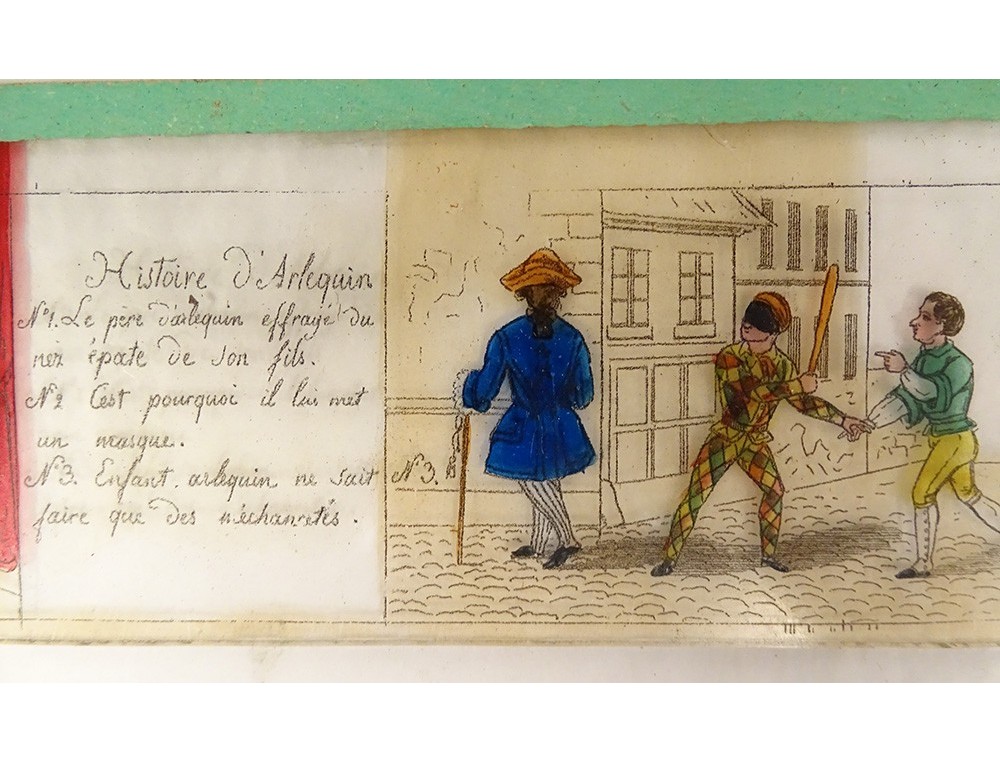 Histoire d'Arlequin
N°1. Le père d'arlequin effrayé du
nez épate de son fils.
N°2 C'est pourquoi il lui met
un masque.
N°3. Enfant. arlequin ne sait
faire que des méchancetés.
N°3.